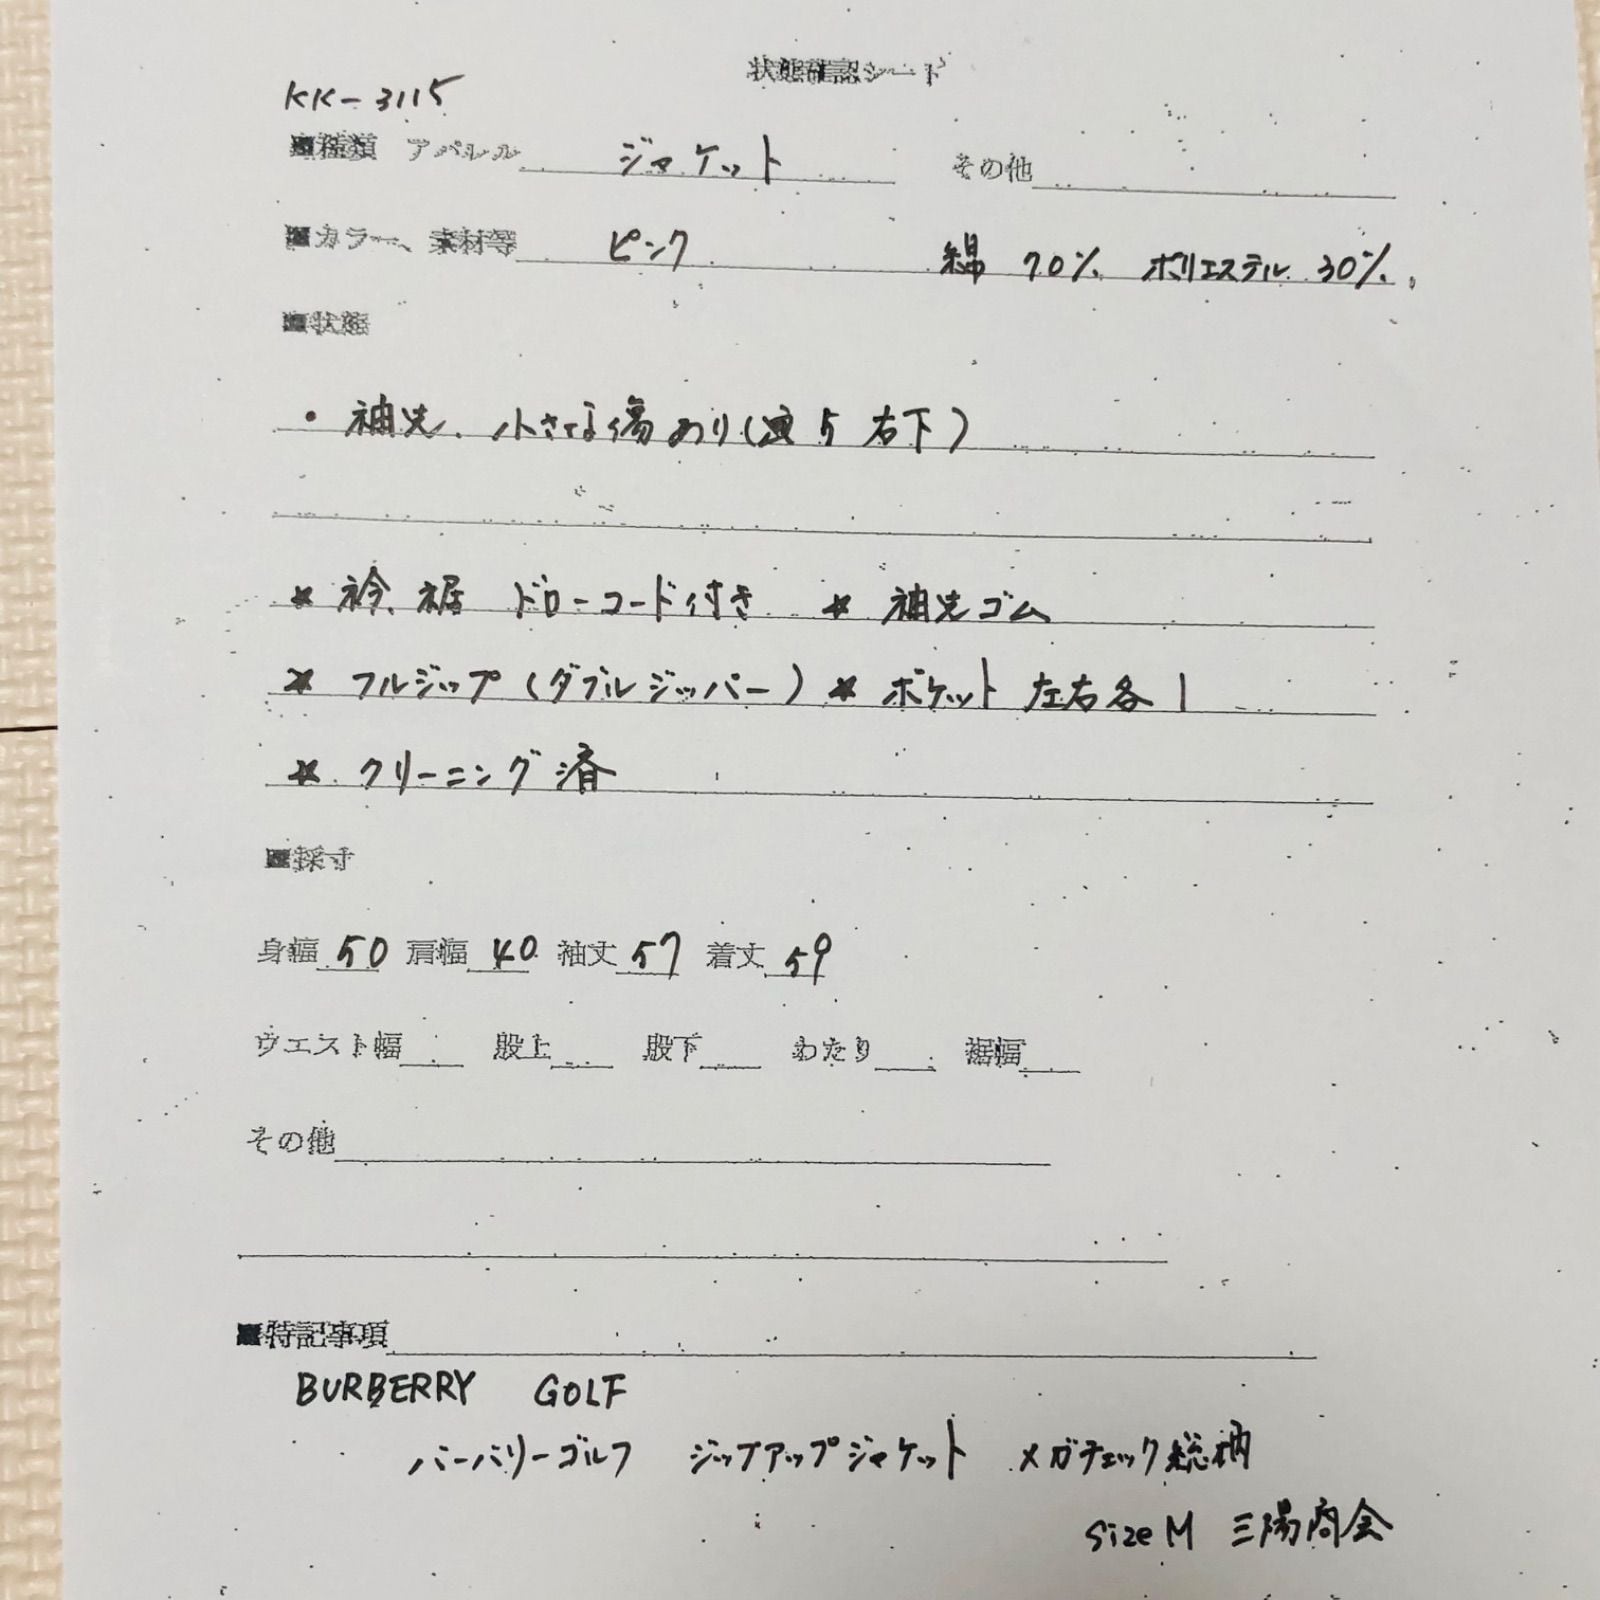 状態確認シート
KK-3115
■種類 アパレル ジャケット その他
■カラー、素材等 ピンク 綿 70% ポリエステル 30%
■状態
・袖先、小さな傷あり( 5 右下)
★衿、裾 ドローコード付き ★袖先ゴム
★フルジップ(ダブルジッパー) ★ポケット 左右各1
★クリーニング済
■採寸
身幅 50 肩幅 40 袖丈 57 着丈 59
ウエスト幅 股上 股下 わたり 裾幅
その他
■特記事項
BURBERRY GOLF
バーバリーゴルフ ジップアップジャケット メガチェック総柄
size M 三陽商会